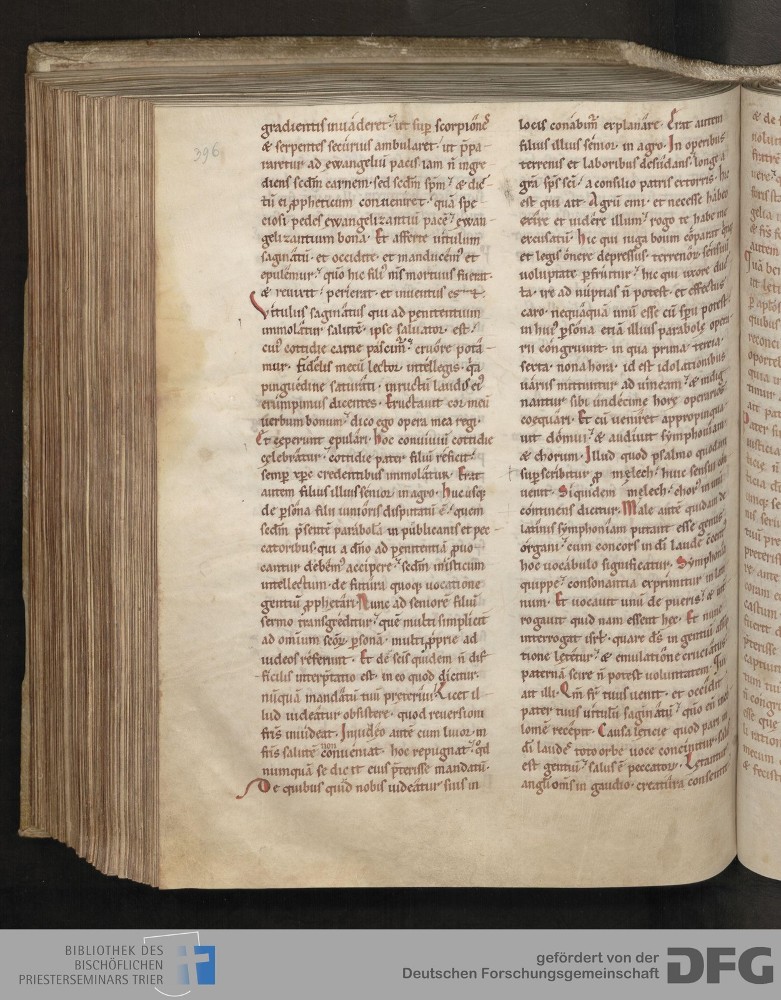 396
gradientis inuaderet. ut sup scorpiones
& serpentes securius ambularet. ut p̄pa
raretur ad ewangeliū pacis iam n̄ ingre
diens scdm̄ carnem. sed scdm̄ sp̄m. & dic
tū ei ꝓpheticum conueniret. quā spe
ciosi pedes ewangelizantiū pacē. ewan
gelizantium bona. Et afferte uitulum
saginatū. et occidite. et manducem᷒ et
epulemur. quo hic fili᷒ m̄s mortuus fuerat.
& reuixit. perierat. et inuentus est.
Vitulus saginatus qui ad penitentium
immolatur salutē. ipse saluator est.
cui᷒ cottidie carne pascim̄. cruore pota
mur. fidelis mecū lector. intellegis. qa
pinguedine saturati. in ructū laudū ei᷒
erumpimus dicentes. Eructauit cor meū
uerbum bonum. dico ego opera mea regi.
Et ceperunt epulari. hoc conuiuiū cottidie
celebratur. cottidie pater filiū reficit.
semp xp̄c credentibus immolatur. Erat
autem filius illius senior in agro. huc usq;
de psona filii iunioris disputatū ē. quem
scdm p̄sente parabolā in publicanis et pec
catoribus. qui a dn̄o ad penitentiā ꝓuo
cantur debem᷒ accipere. scdm̄ misticum
intellectum. de futura quoq; uocatione
gentiū ꝓphetari. Nunc ad seniorē filiū
sermo transgreditur. quē multi simplicit̄
ad omium scōꝝ psonā. multi ꝓprie ad
iudeos referunt. Et de scīs quidem n̄ dif
ficilis interp̄tatio est. in eo quod dicitur.
nūquā mandatū tuū preteriui. Licet il
lud uideatur obsistere. quod reuersioni
fr̄is inuideat. In iudeo autē cum liuor in
fr̄is salutē non conueniat. hoc repugnat. qd̄
numquā se dicit eius p̄terisse mandatū.
De quibus quid nobis uideatur suis in
locis conabim̄ explanare. Erat autem
filius illius senior in agro. In operibus
terrenis et laboribus desudans. longe a
gr̄a sp̄s sc̄i. a consilio patris extorris. hic
est qui ait. Agrū emi. et necesse habeo
exire et uidere illum. rogo te habe me
excusatū. hic qui iuga boum cōparat
et legis onere depressus. terrenoꝝ sensuū
uoluptate pfruitur. hic qui uxore duc
ta. ire ad nuptias n̄ potest. et effectus
caro. nequaquā unū esse cū sp̄u potest.
in hui᷒ psona etiā illius parabole opera
rii congruunt. in qua prima. tercia.
sexta. nona hora. id est idolationibus
uariis mittuntur ad uineam. & indig
nantur sibi undecime hore operarios
coequari. Et cū ueniret appropinqua
uit domui. & audiuit symphoniam
& chorum. Illud quod psalmo quodam
supscribitur ꝓ melech. huic sensui con
uenit. Siquidem melech. chor᷒ in unū
continens dicitur. Male autē quidam de
latinis symphoniam putant esse genus
organi. cum concors in dī laudē
hoc uocabulo significatur. Symphonia
quippe. consonantia exprimitur in lati
num. Et uocauit unū de pueris. & int̄
rogauit quid nam essent hec. Et nunc
interrogat isrl̄. quare ds̄ in gentiū assūp
tione letetur. & emulatione cruciatus
paternā scire n̄ potest uoluntatem. Qui
ait illi. Qm̄ fr̄ tuus uenit. et occidit
pater tuus uitulū saginatū. quo eū inco
lomē recepit. Causa leticie quod pari in
dī laudē toto orbe uoce concinitur. salus
est gentiū. salus ē peccatoꝝ. Letantur
angli oms̄ in gaudio. creatura consentit
BIBLIOTHEK DES
BISCHÖFLICHEN
PRIESTERSEMINARS TRIER
gefördert von der
Deutschen Forschungsgemeinschaft
DFG